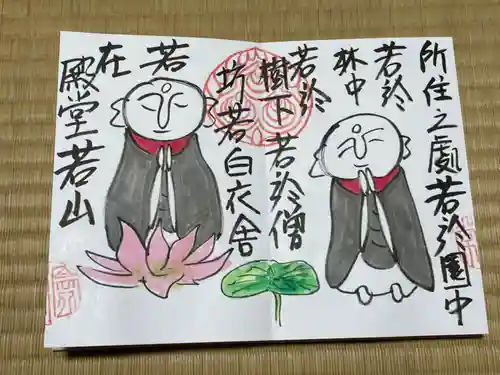 所住之處若於園中
若於
林中
若於
樹下若於僧
坊若白衣舎
若
在
殿堂若山